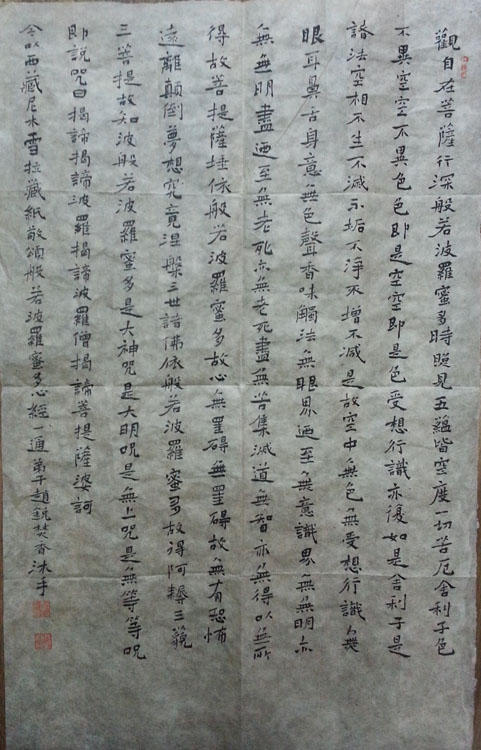 觀自在菩薩行深般若波羅蜜多時照見五蘊皆空度一切苦厄舍利子色
不異空空不異色色即是空空即是色受想行識亦復如是舍利子是
諸法空相不生不滅不垢不淨不增不減是故空中無色無受想行識無
眼耳鼻舌身意無色聲香味觸法無眼界迺至無意識界無無明亦
無無明盡迺至無老死亦無老死盡無苦集滅道無智亦無得以無所
得故菩提薩埵依般若波羅蜜多故心無罣礙無罣礙故無有恐怖
遠離顛倒夢想究竟涅槃三世諸佛依般若波羅蜜多故得阿耨三藐
三菩提故知波般若波羅蜜多是大神咒是大明咒是無上咒是無等等咒
即說咒曰揭諦揭諦波羅揭諦波羅僧揭諦菩提薩婆訶
今以西藏尼木雪拉藏紙敬頌般若波羅蜜多心經一通弟子趙銳焚香沐手